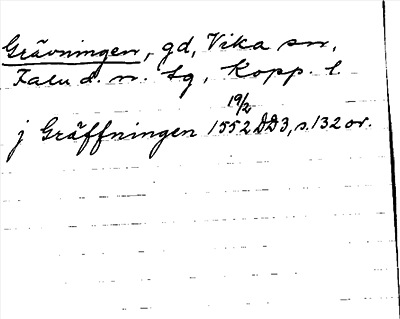 Grävningen, gd, Vika sn,
Falu d. n. tg, Kopp. l
19/2
j Gräffningen 1552 DD3, s. 132 or.